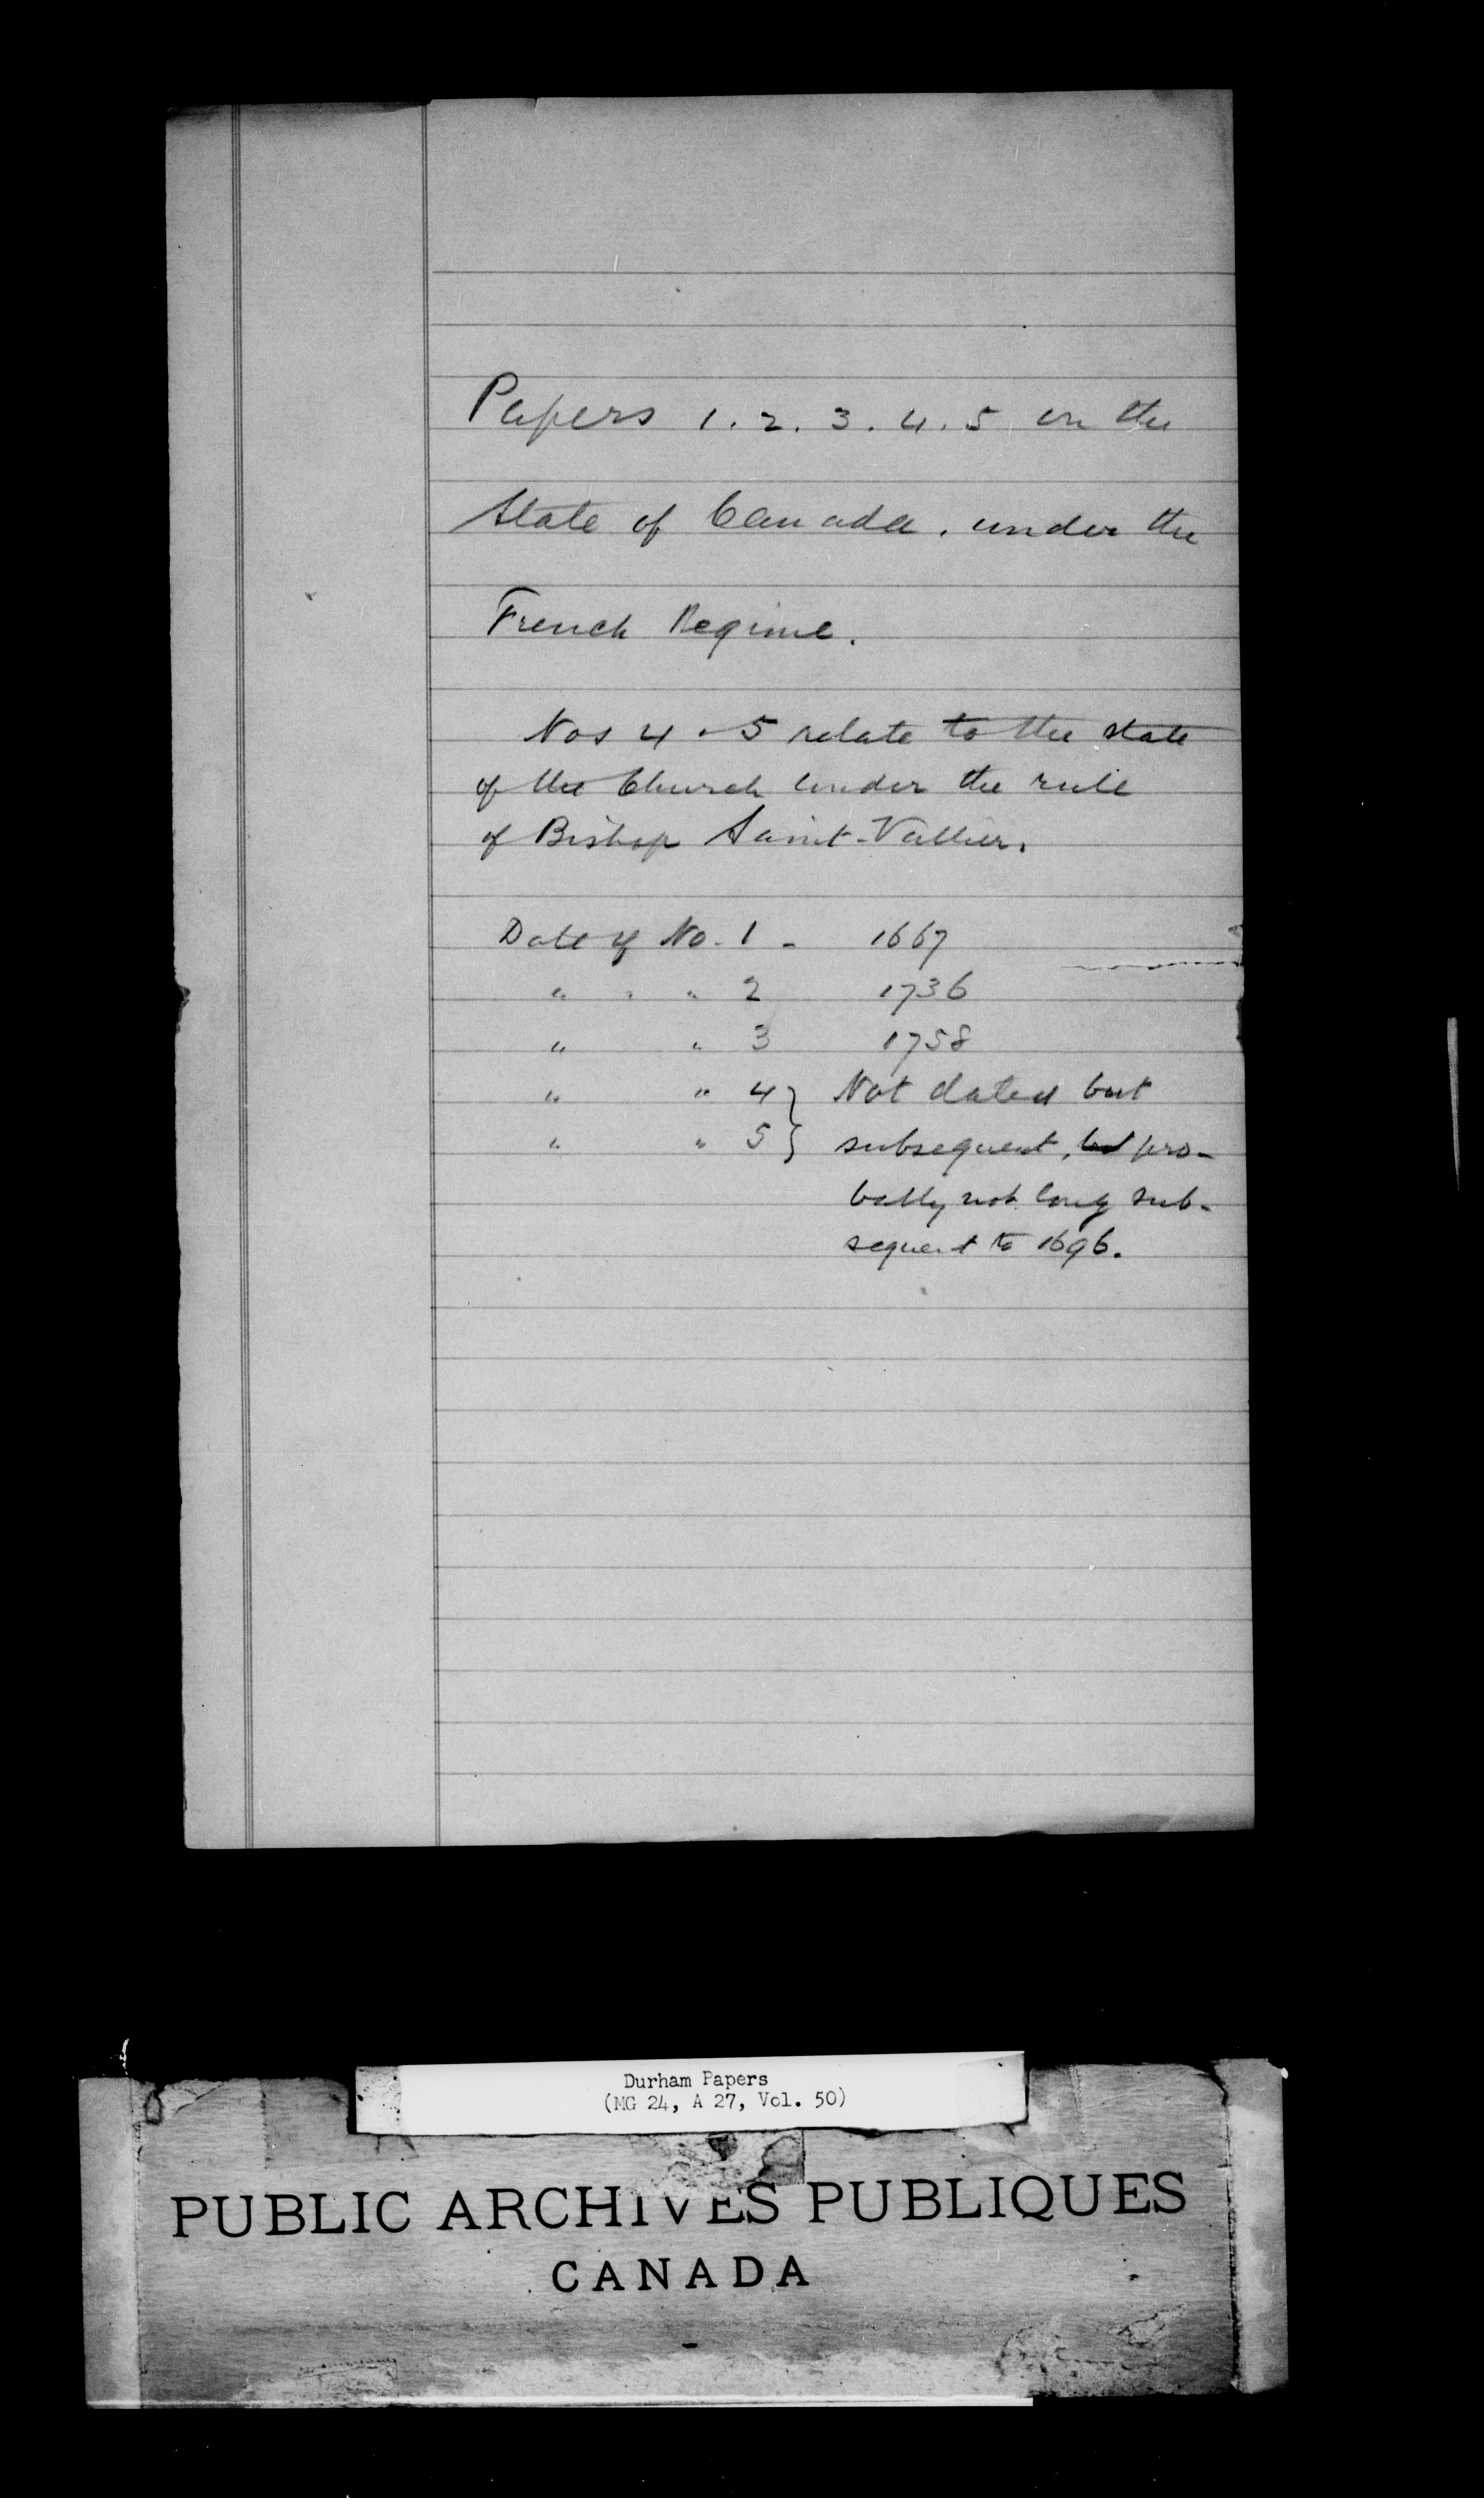 Papers 1. 2. 3. 4. 5 on the
State of Canada. under the
French Regime.
Nos 4 . 5 relate to the state
of the Church under the rule
of Bishop Saint-Vallier.
Date of No. 1 - 1667
" " " 2 1736
" " 3 1758
" " 4 } Not dated but
" " 5 } subsequent, but pro-
bably not long sub-
sequent to 1696.
Durham Papers
(MG 24, A 27, Vol. 50)
PUBLIC ARCHIVES PUBLIQUES
CANADA